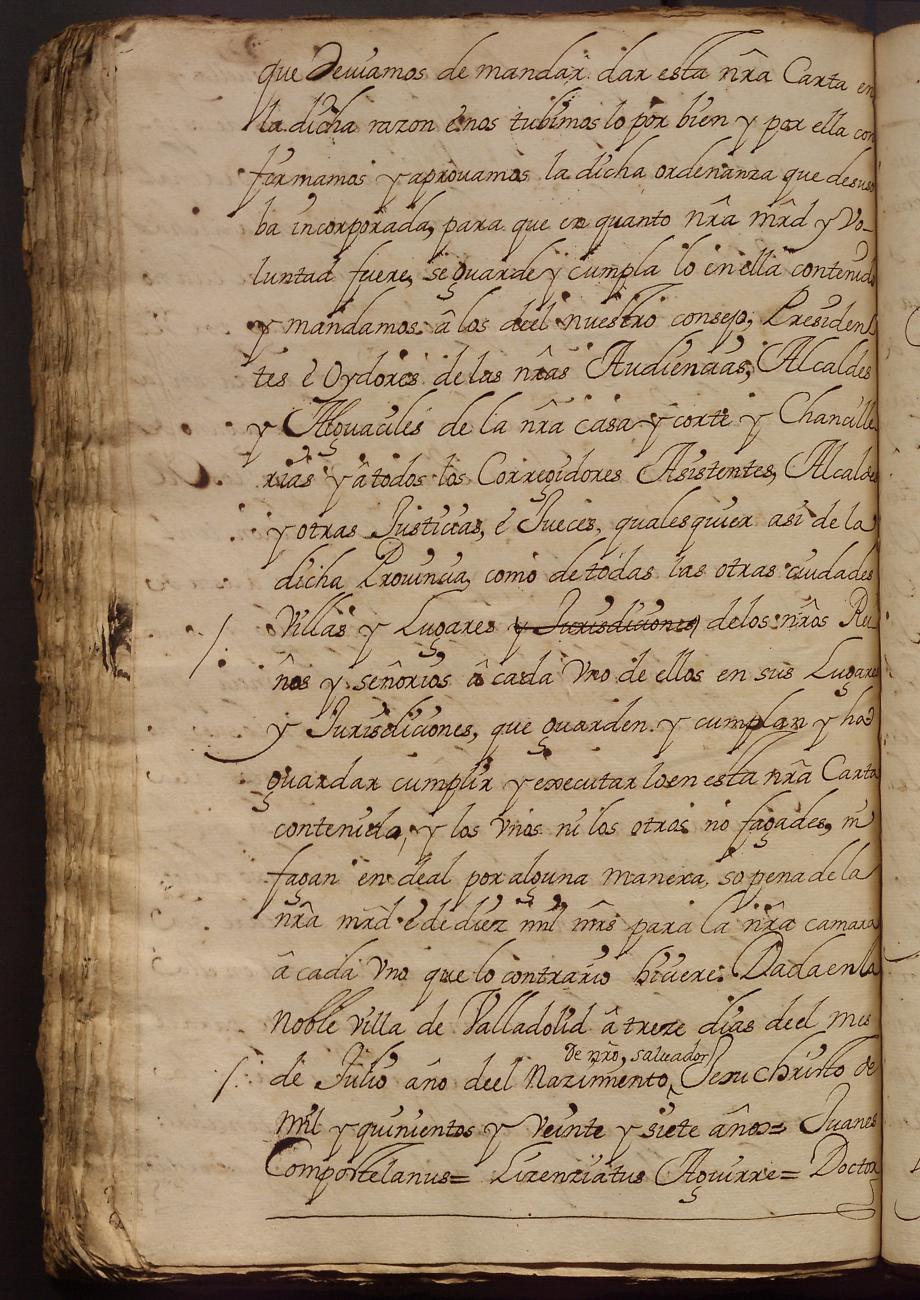 que Deviamos de mandar dar esta nrã Carta en
la dicha razon è nos tubimos lo por bien y por ella con
firmamos y aprovamos la dicha ordenanza que desuso
ba incorporada, para que en quanto nrã mrd y Vo-
luntad fuere, se guarde y cumpla lo en ella contenido
y mandamos â los deel nuestro consejo; Presiden
tes è Oydores de las nrãs Audiencias, Alcaldes
y Alguaciles de la nrã casa y corte y Chancille
rias y â todos los Corregidores Asistentes, Alcaldes
y otras Justicias, è Jueces, qualesquier asi de la
dicha Provincia, como de todas las otras ciudades
Villas y Lugares y Jurisdiciones de los nrõs Rei
nos y señorios â cada Vno de ellos en sus Lugares
y Jurisdiciones, que guarden y cumplan y hagã
guardar cumplir y executar lo en esta nrã Carta
contenido, y los Vnos ni los otros no fagades, ni
fagan en deal por alguna manera, so pena de la
nrã mrd è de diez mil mrs para la nrã camara
â cada Vno que lo contrario hiciere: Dada en la
Noble Villa de Valladolid â treze dias deel mes
de Julio año deel Nazimiento de nrõ salvador Jesuchristo de
Mil y quinientos y Veinte y siete años= Juanes
Compostelanus= Lizenziatus Aguirre= Doctor